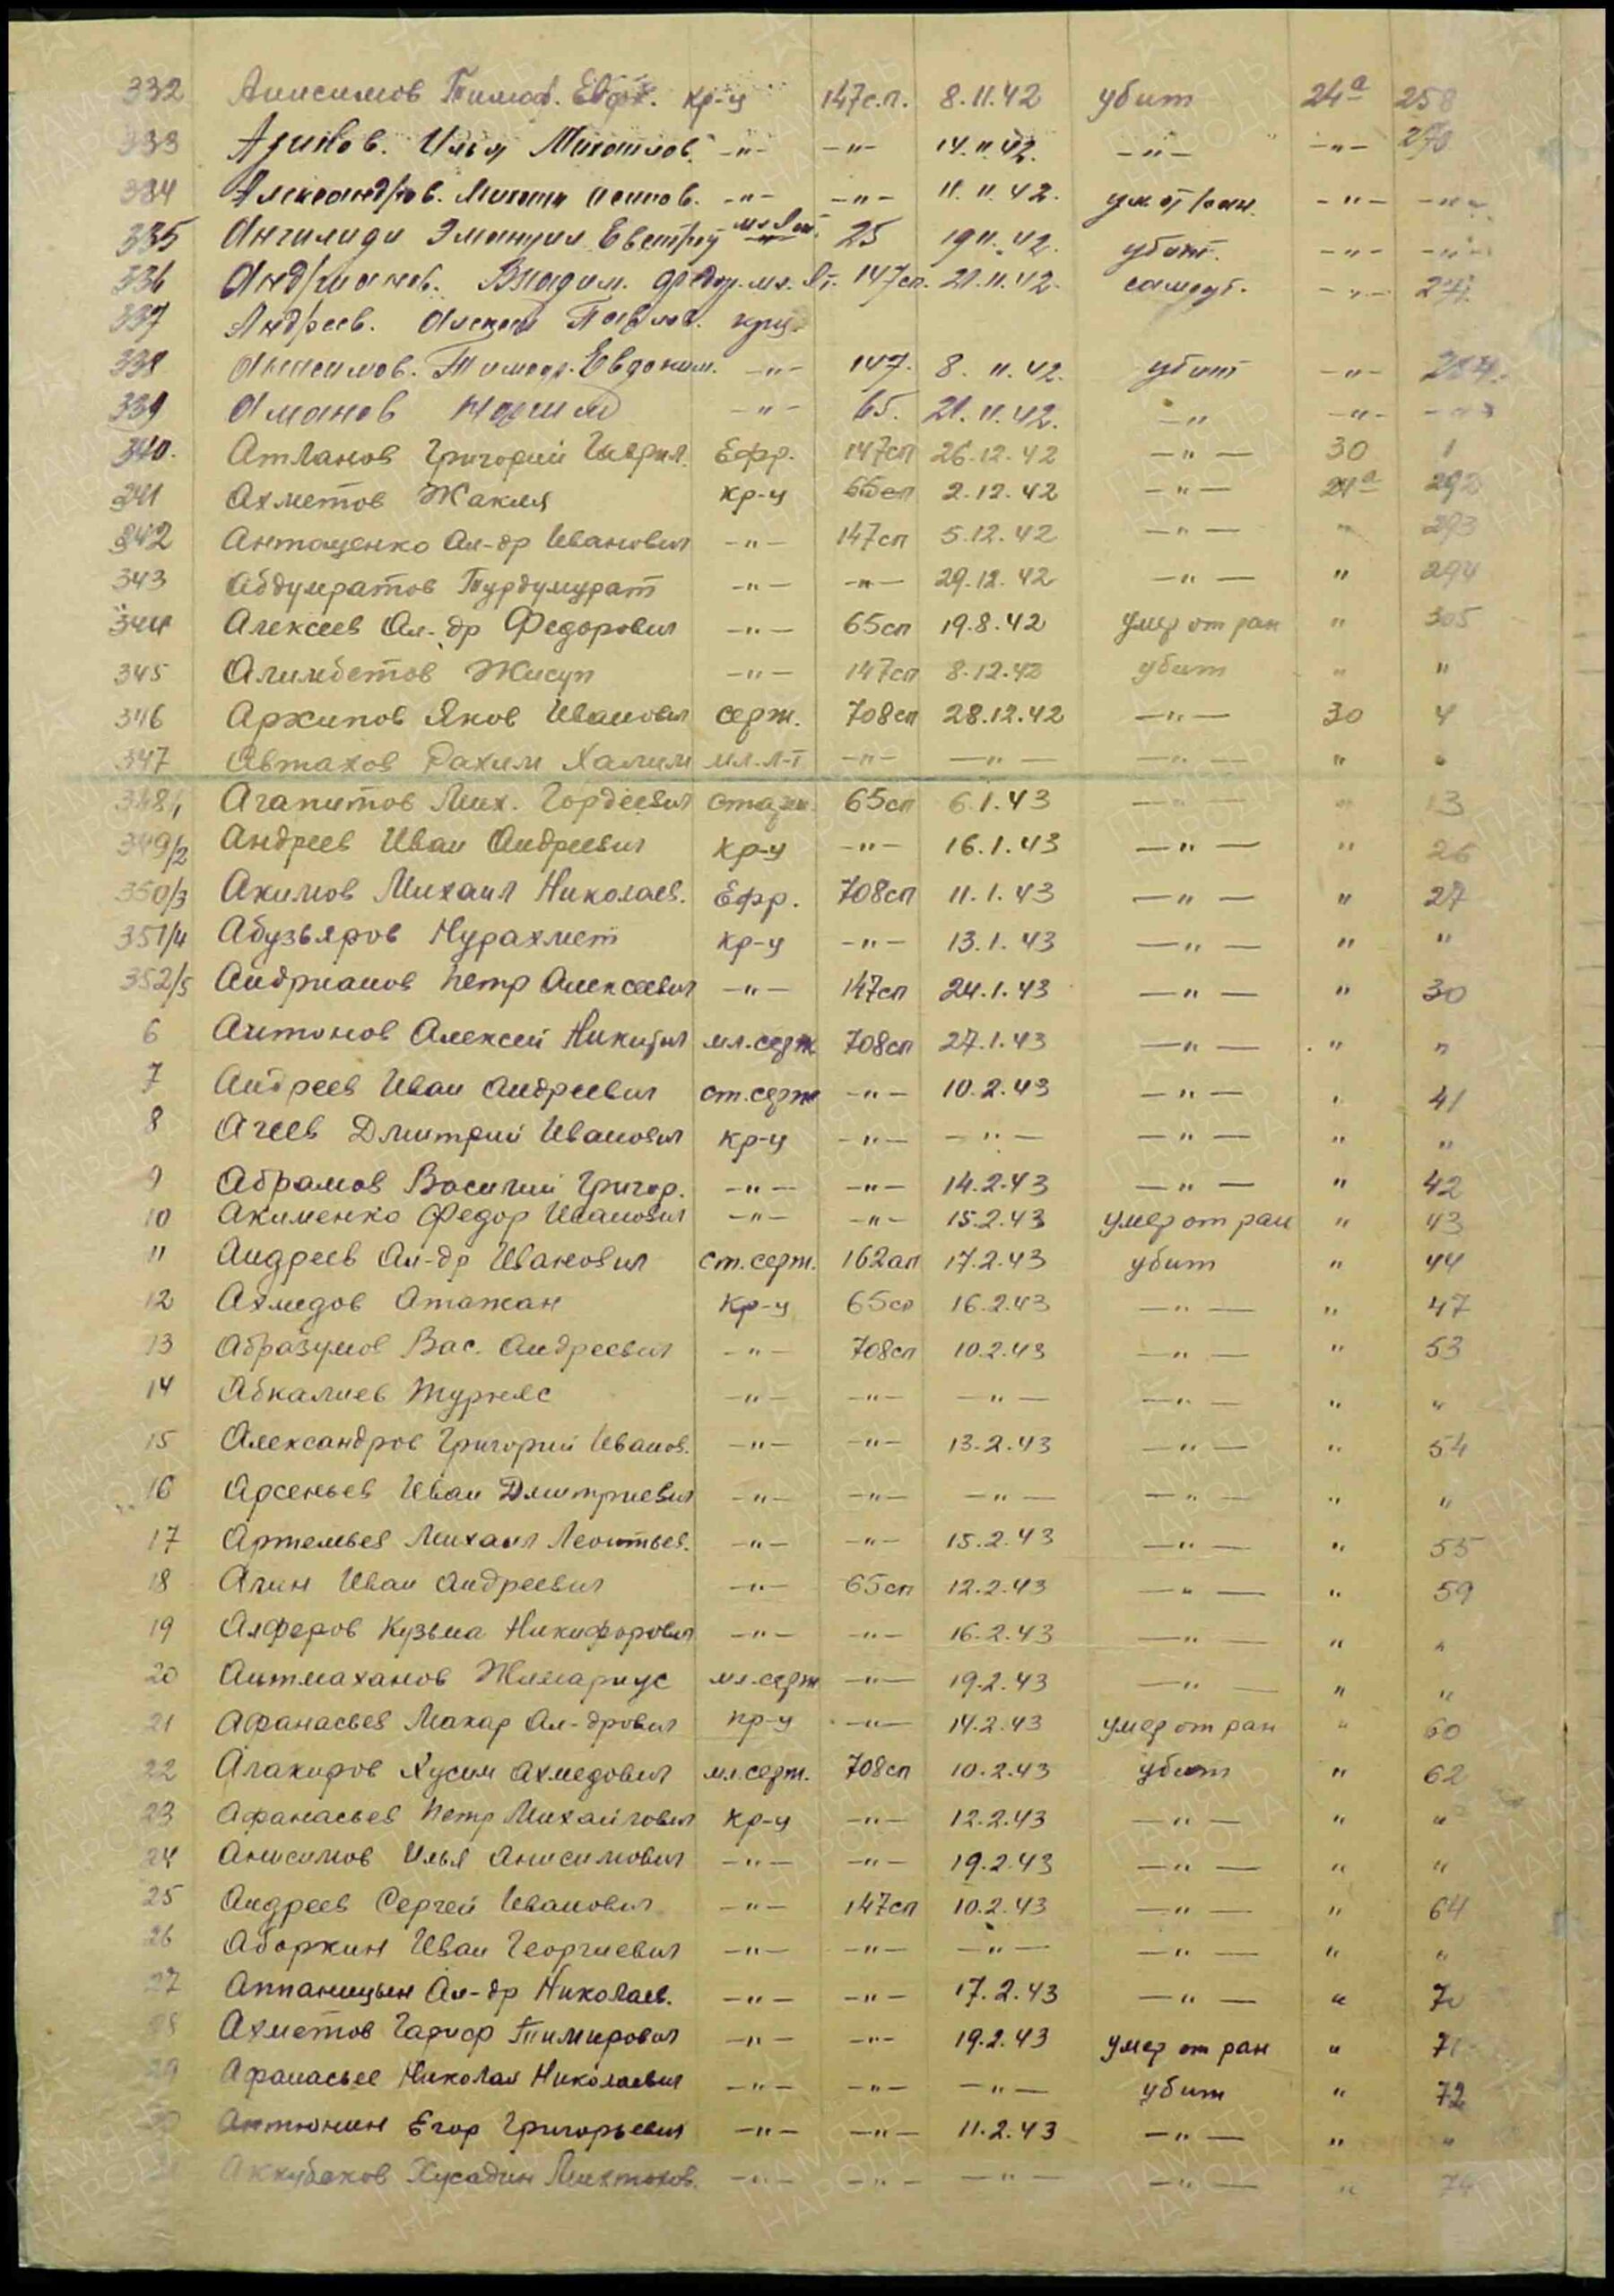 332 Анисимов Тимоф. кр-ц 147с.п. 8.11.42 убит 24а 258
333 Илья -"- -"- 14.11.42. -"- -"- 270
334 Александров. Осипов. -"- -"- 11.11.42. -"- -"-
335 Ангилиди Эмануил Евстрат мл. 25 19 11. 42. убит. -"- -"-
336 Андрианов. Владим. Федор. мл. Лт. 147сп. 21.11.42. -"-
337 Андреев. Алексей Павлов.
338 Анисимов. Тимоф. Евдоким. -"- 147. 8. 11. 42. убит -"-
339 Аманов -"- 65. 21. 11. 42. -"- -"- -"-
340. Атланов Григорий Гаврил. Ефр. 147сп 26.12.42 -"- 30 1
341 Ахметов Жакия кр-ц 65сп 2.12.42 -"- 24а 292
342 Антощенко Ал-др Иванович -"- 147сп 5.12.42 -"- " 293
343 Абдумратов Турдумурат -"- -"- 29.12.42 -"- " 294
344 Алексеев Ал-др Федорович -"- 65сп 19.8.42 умер от ран " 305
345 Алимбетов Жисуп -"- 147сп 8.12.42 убит " "
346 Архипов Яков Иванович серж. 708сп 28.12.42 -"- 30 4
347 Автахов Рахим Халим мл.л-т -"- -"- -"- " "
348/1 Агапитов Мих. Гордеевич 65сп 6.1.43 -"- " 13
349/2 Андреев Иван Андреевич кр-ц -"- 16.1.43 -"- " 26
350/3 Акимов Михаил Николаев. Ефр. 708сп 11.1.43 -"- " 27
351/4 Абузьяров Нурахмет кр-ц -"- 13.1.43 -"- " "
352/5 Андрианов Петр Алексеевич -"- 147сп 24.1.43 -"- " 30
6 Антонов Алексей Никитич мл.серж 708сп 27.1.43 -"- " "
7 Андреев Иван Андреевич ст.серж -"- 10.2.43 -"- " 41
8 Агеев Дмитрий Иванович кр-ц -"- -"- -"- " "
9 Абрамов Василий Григор. -"- -"- 14.2.43 -"- " 42
10 Акименко Федор Иванович -"- -"- 15.2.43 умер от ран " 43
11 Андреев Ал-др Иванович ст.серж. 162ап 17.2.43 убит " 44
12 Ахмедов Атажан кр-ц 65сп 16.2.43 -"- " 47
13 Абразумов Вас. Андреевич -"- 708сп 10.2.43 -"- " 53
14 Абкалиев -"- -"- -"- -"- " "
15 Александров Григорий Иванов. -"- -"- 13.2.43 -"- " 54
16 Арсеньев Иван Дмитриевич -"- -"- -"- -"- " "
17 Артемьев Михаил Леонтьев. -"- -"- 15.2.43 -"- " 55
18 Алин Иван Андреевич -"- 65сп 12.2.43 -"- " 59
19 Алферов Кузьма Никифорович -"- -"- 16.2.43 -"- " "
20 Аитмаханов мл.серж -"- 19.2.43 -"- " "
21 Афанасьев Макар Ал-дрович кр-ц -"- 14.2.43 умер от ран " 60
22 Алакиров Хусим Ахмедович мл.серж. 708сп 10.2.43 убит " 62
23 Афанасьев Петр Михайлович кр-ц -"- 12.2.43 -"- " "
24 Анисимов Илья Анисимович -"- -"- 19.2.43 -"- " "
25 Андреев Сергей Иванович -"- 147сп 10.2.43 -"- " 64
26 Аборкин Иван Георгиевич -"- -"- -"- -"- " "
27 Аппаницын Ал-др Николаев. -"- -"- 17.2.43 -"- " 70
28 Ахметов Гариф Тимирович -"- -"- 19.2.43 умер от ран " 71
29 Афанасьев Николай Николаевич -"- -"- -"- убит " 72
30 Антюнин Егор Григорьевич -"- -"- 11.2.43 -"- " "
Аккубаков Хусадин -"- -"- -"- -"- " 74